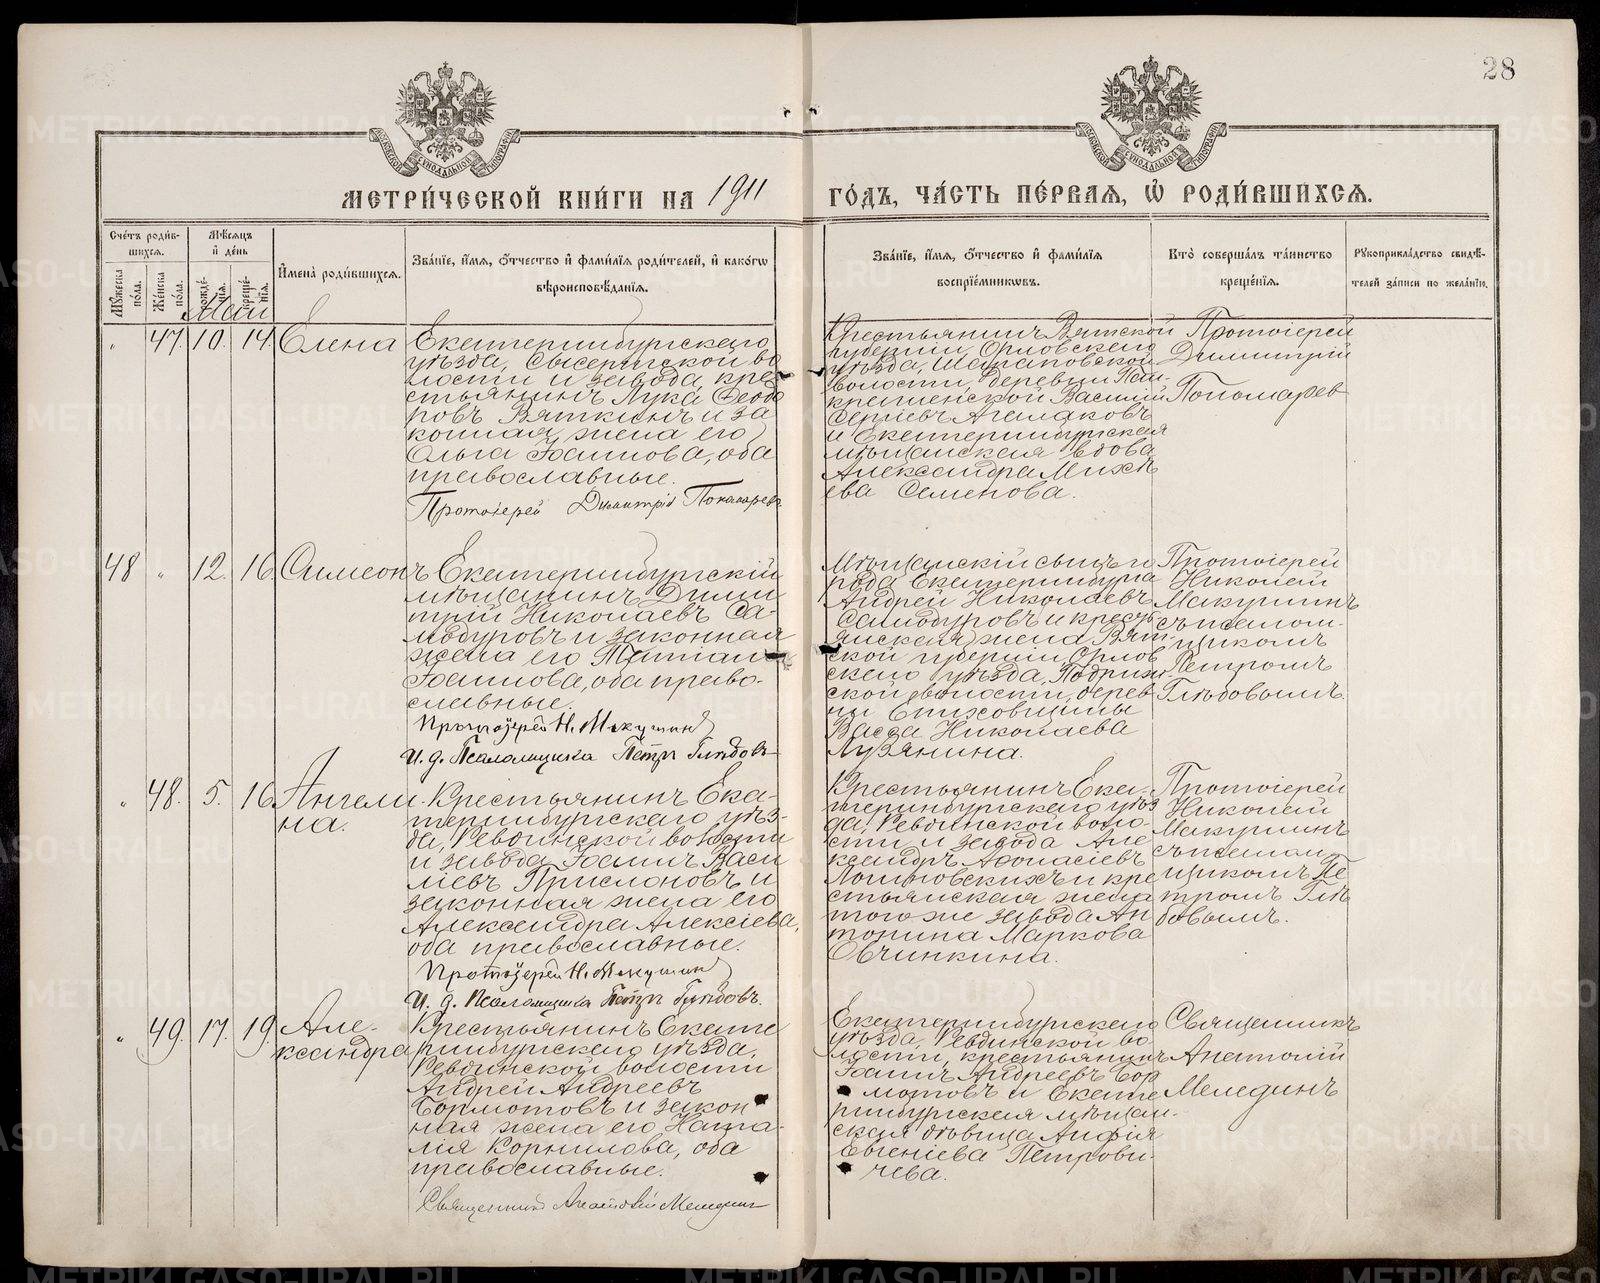 28
МЕТРИ́ЧЕСКОЙ КНИ́ГИ НА 1911 ГО́ДЪ, ЧА́СТЬ ПЕ́РВАЯ, Ѿ РОДИ́ВШИХСЯ.
Сче́тъ роди́вшихся.
Му́жеска по́ла.
Же́нска по́ла.
Мѣ́сяцъ и де́нь
рожде́нія.
креще́нія.
Имена̀ роди́вшихся.
Зва́ніе, и́мя, о́тчество и фами́лія роди́телей, и како́гѡ
вѣроисповѣ́данія.
Зва́ніе, и́мя, о́тчество и фами́лія
воспріе́мникѡвъ.
Кто̀ соверша́лъ та́инство
креще́нія.
Рукоприкла́дство свидѣ́-
телей за́писи по жела́нію.
Май
" 47. 10. 14. Елена
Екатеринбургскаго
уѣзда, Сысертской во
лости и завода, кре
стьянинъ Лука Ѳеодо
ровъ Вяткинъ и за
конная жена его
Ольга Іоаннова, оба
православные.
Протоіерей Димитрій Пономаревъ
Крестьянинъ Вятской
губерніи Орловскаго
уѣзда,
волости, деревни
Василій
Сергіевъ
и Екатеринбургская
мѣщанская вдова
Александра Михѣ
ева Семенова.
Протоіерей
Димитрій
Пономарев
48 " 12. 16. Симеонъ
Екатеринбургскій
мѣщанинъ Дими
трій Николаевъ Са-
модуровъ и законная
жена его Татіана
Іоаннова, оба право-
славные.
Протоіерей Н. Мекушинъ
И. д. Псаломщика Петръ Глѣбовъ
Мѣщанскій сынъ го
рода Екатеринбурга
Андрей Николаевъ
Самодуровъ и кресть
янская жена Вят-
ской губерніи, Орлов
скаго уѣзда,
ской волости, дерев
ни Епиховщины
Васса Николаева
Лузянина.
Протоіерей
Николай
Макушинъ
съ псалом-
щикомъ
Петромъ
Глѣбовымъ.
" 48. 5. 16. Ангели
на.
Крестьянинъ Ека-
теринбургскаго уѣз-
да, Ревдинской волости
и завода Іоаннъ Васи
ліевъ Прислоновъ и
законная жена его
Александра Алексіева,
оба православные.
Протоіерей Н. Мекушинъ
И. д. Псаломщика Петръ Глѣбовъ.
Крестьянинъ Ека-
теринбургскаго уѣз
да, Ревдинской воло-
сти и завода Але
ксандръ Аѳонасіевъ
Логиновскихъ и кре
стьянская жена
того же завода Ан
тонина Маркова
Овчинкина.
Протоіерей
Николай
Макушинъ
съ псалом
щикомъ Пе
тромъ Глѣ
бовымъ.
" 49. 17. 19. Але-
ксандра
Крестьянинъ Екате
ринбургскаго уѣзда,
Ревдинской волости
Андрей Андреевъ
Бормотовъ и закон
ная жена его Ната-
лія Корнилова, оба
православные.
Священникъ Анатолій Мелединъ
Екатеринбургскаго
уѣзда, Ревдинской во
лости, крестьянинъ
Іоаннъ Андреевъ Бор
мотовъ и Екате
ринбургская мѣщан-
ская дѣвица Анфія
Евгеніева Петрови-
чева.
Священникъ
Анатолій
Мелединъ
METRIKI.GASO-URAL.RU